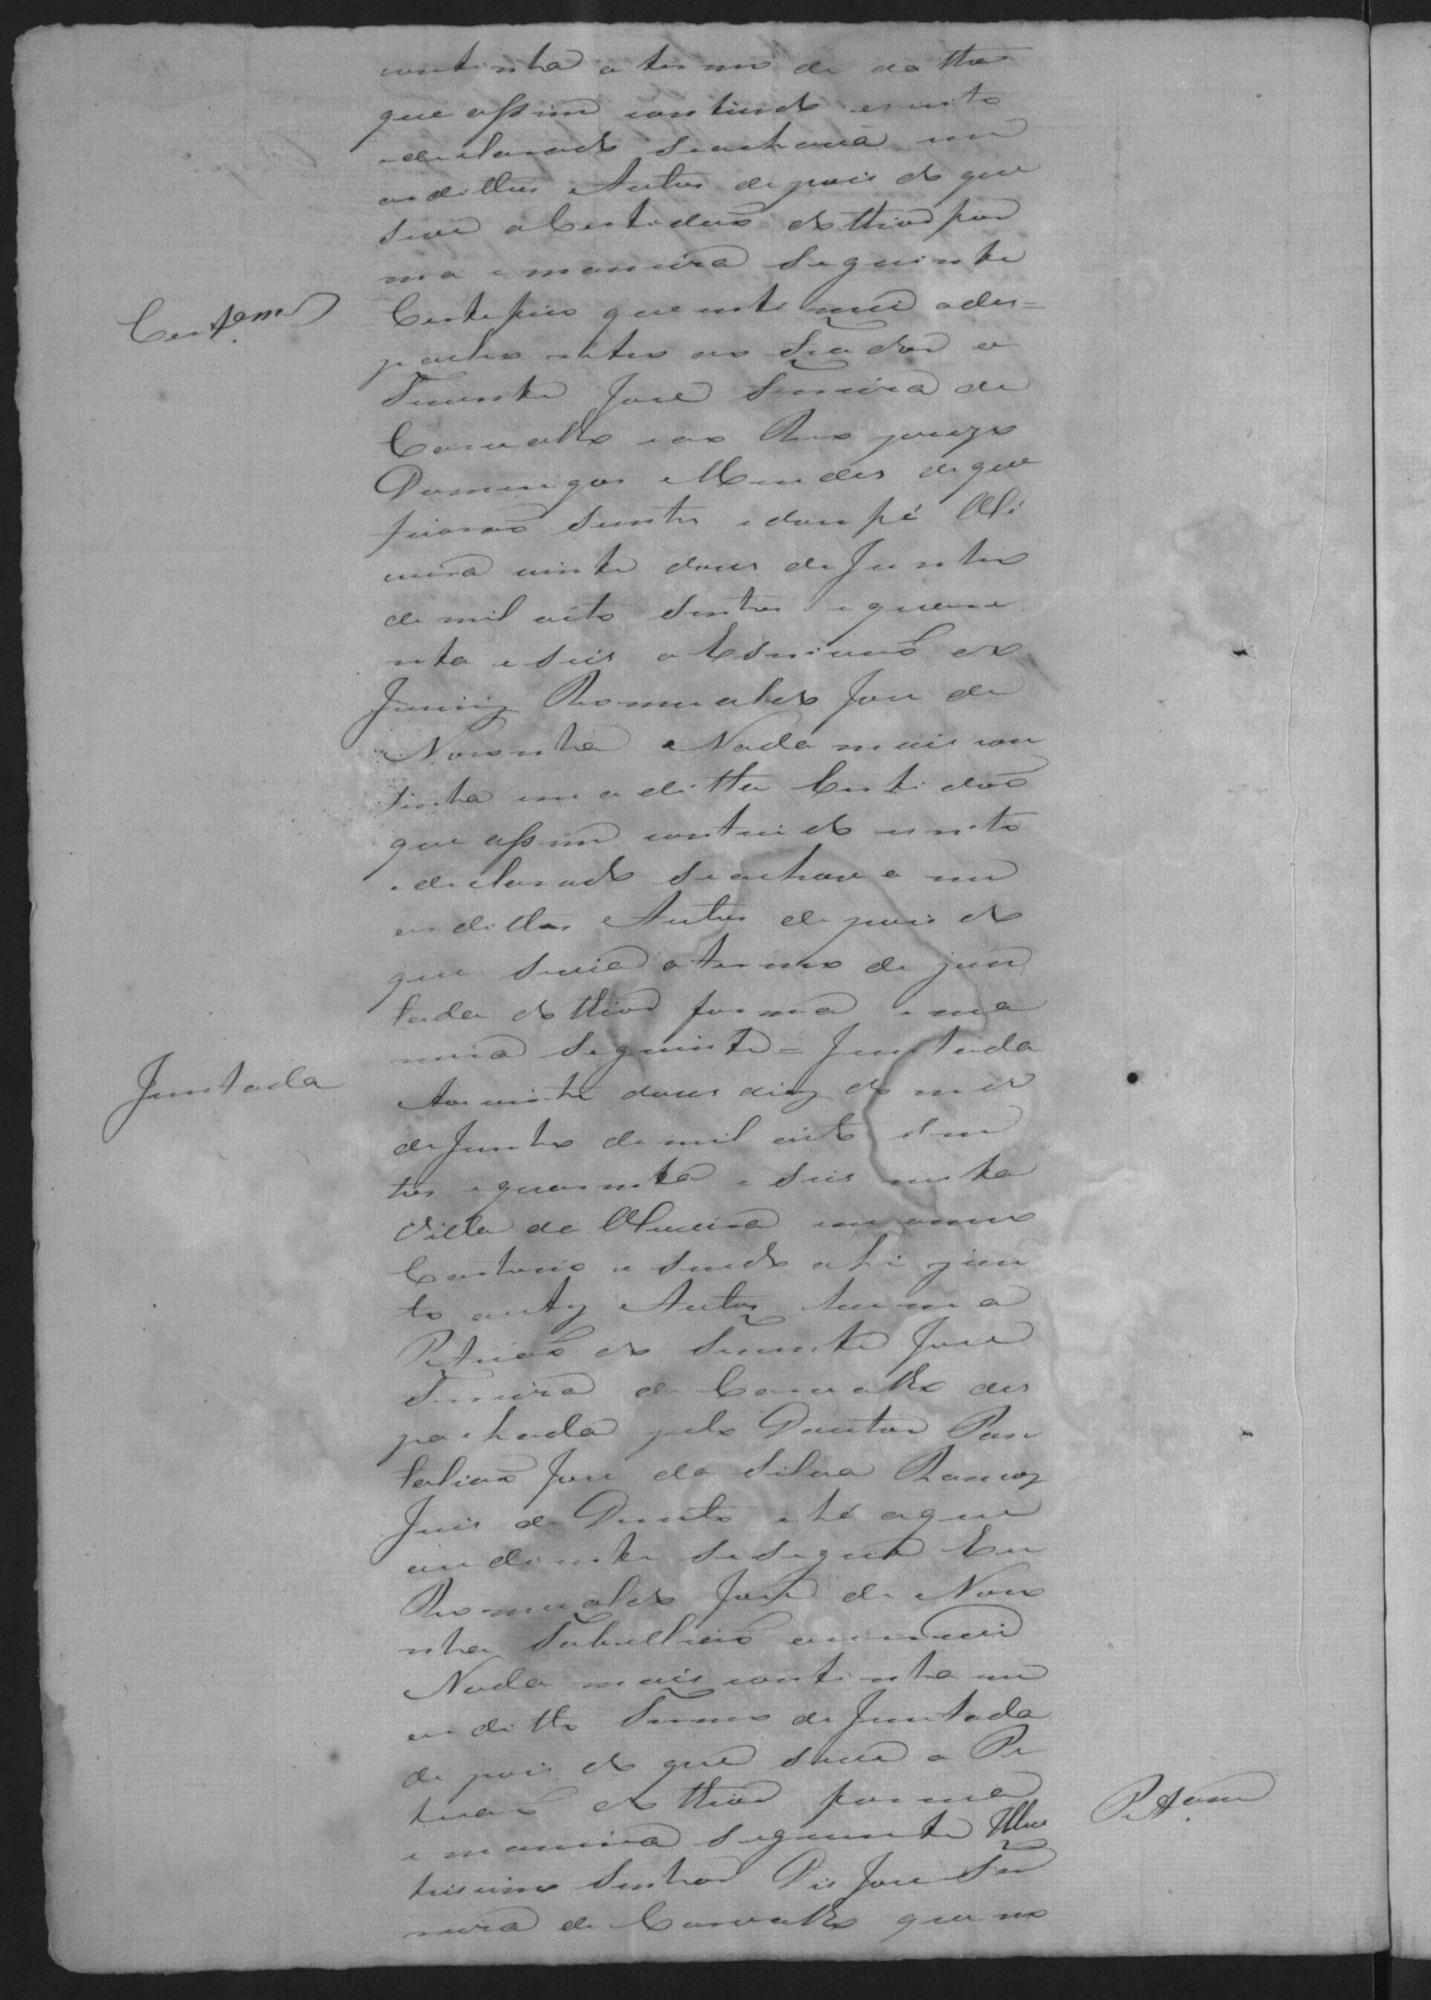 continha o termo de datta
que assim contiudo escrito
edeclarado seachava em
osdittos Autos depois do que
sevê aCertidaõ dotheor for
ma emaneira Seguinte
Cert.am
Certefico que entimei odes=
pacho retro ao
Tenente José Ferreira de
Carvalho eao Reo prezo
Domingos Mendes deque
ficaraõ sientes edou fé Oli
veira vinte dous deJunho
demil oito sentos equare
nta eseis oEscrivaõ do
Juris Romualdo José de
Noronha eNada mais con
tinha em aditta Certidaõ
que assim contiudo escrito
edeclarado seachava em
osdittos Autos depois do
que sevia otermo de jun
tada dotheor forma ema
neira Seguinte = Juntada
Juntada
Aos vinte dous dias do mes
deJunho de mil oito sen
tos equarenta eseis nesta
Villa de Oliveira em omeo
Cartorio e sendo ahi jun
to aestes Autos huma
Petiçaõ do Tenente José
Ferreira de Carvalho des
pachada pelo Doutor Pan
taliaõ José da Silva Ramos
Juis de Direito ehé aque
aodiante sesegue Eu
Romualdo José de Noro
nha Tabelliaõ escrevi
Nada mais continha em
odittto Termo deJuntada
depois do que sevia a Pe
tiçaõ dotheor forma
emaneira seguinte Illus
Pet.am
trissimo Senhor Dis José Fer
reira de Carvalho que no